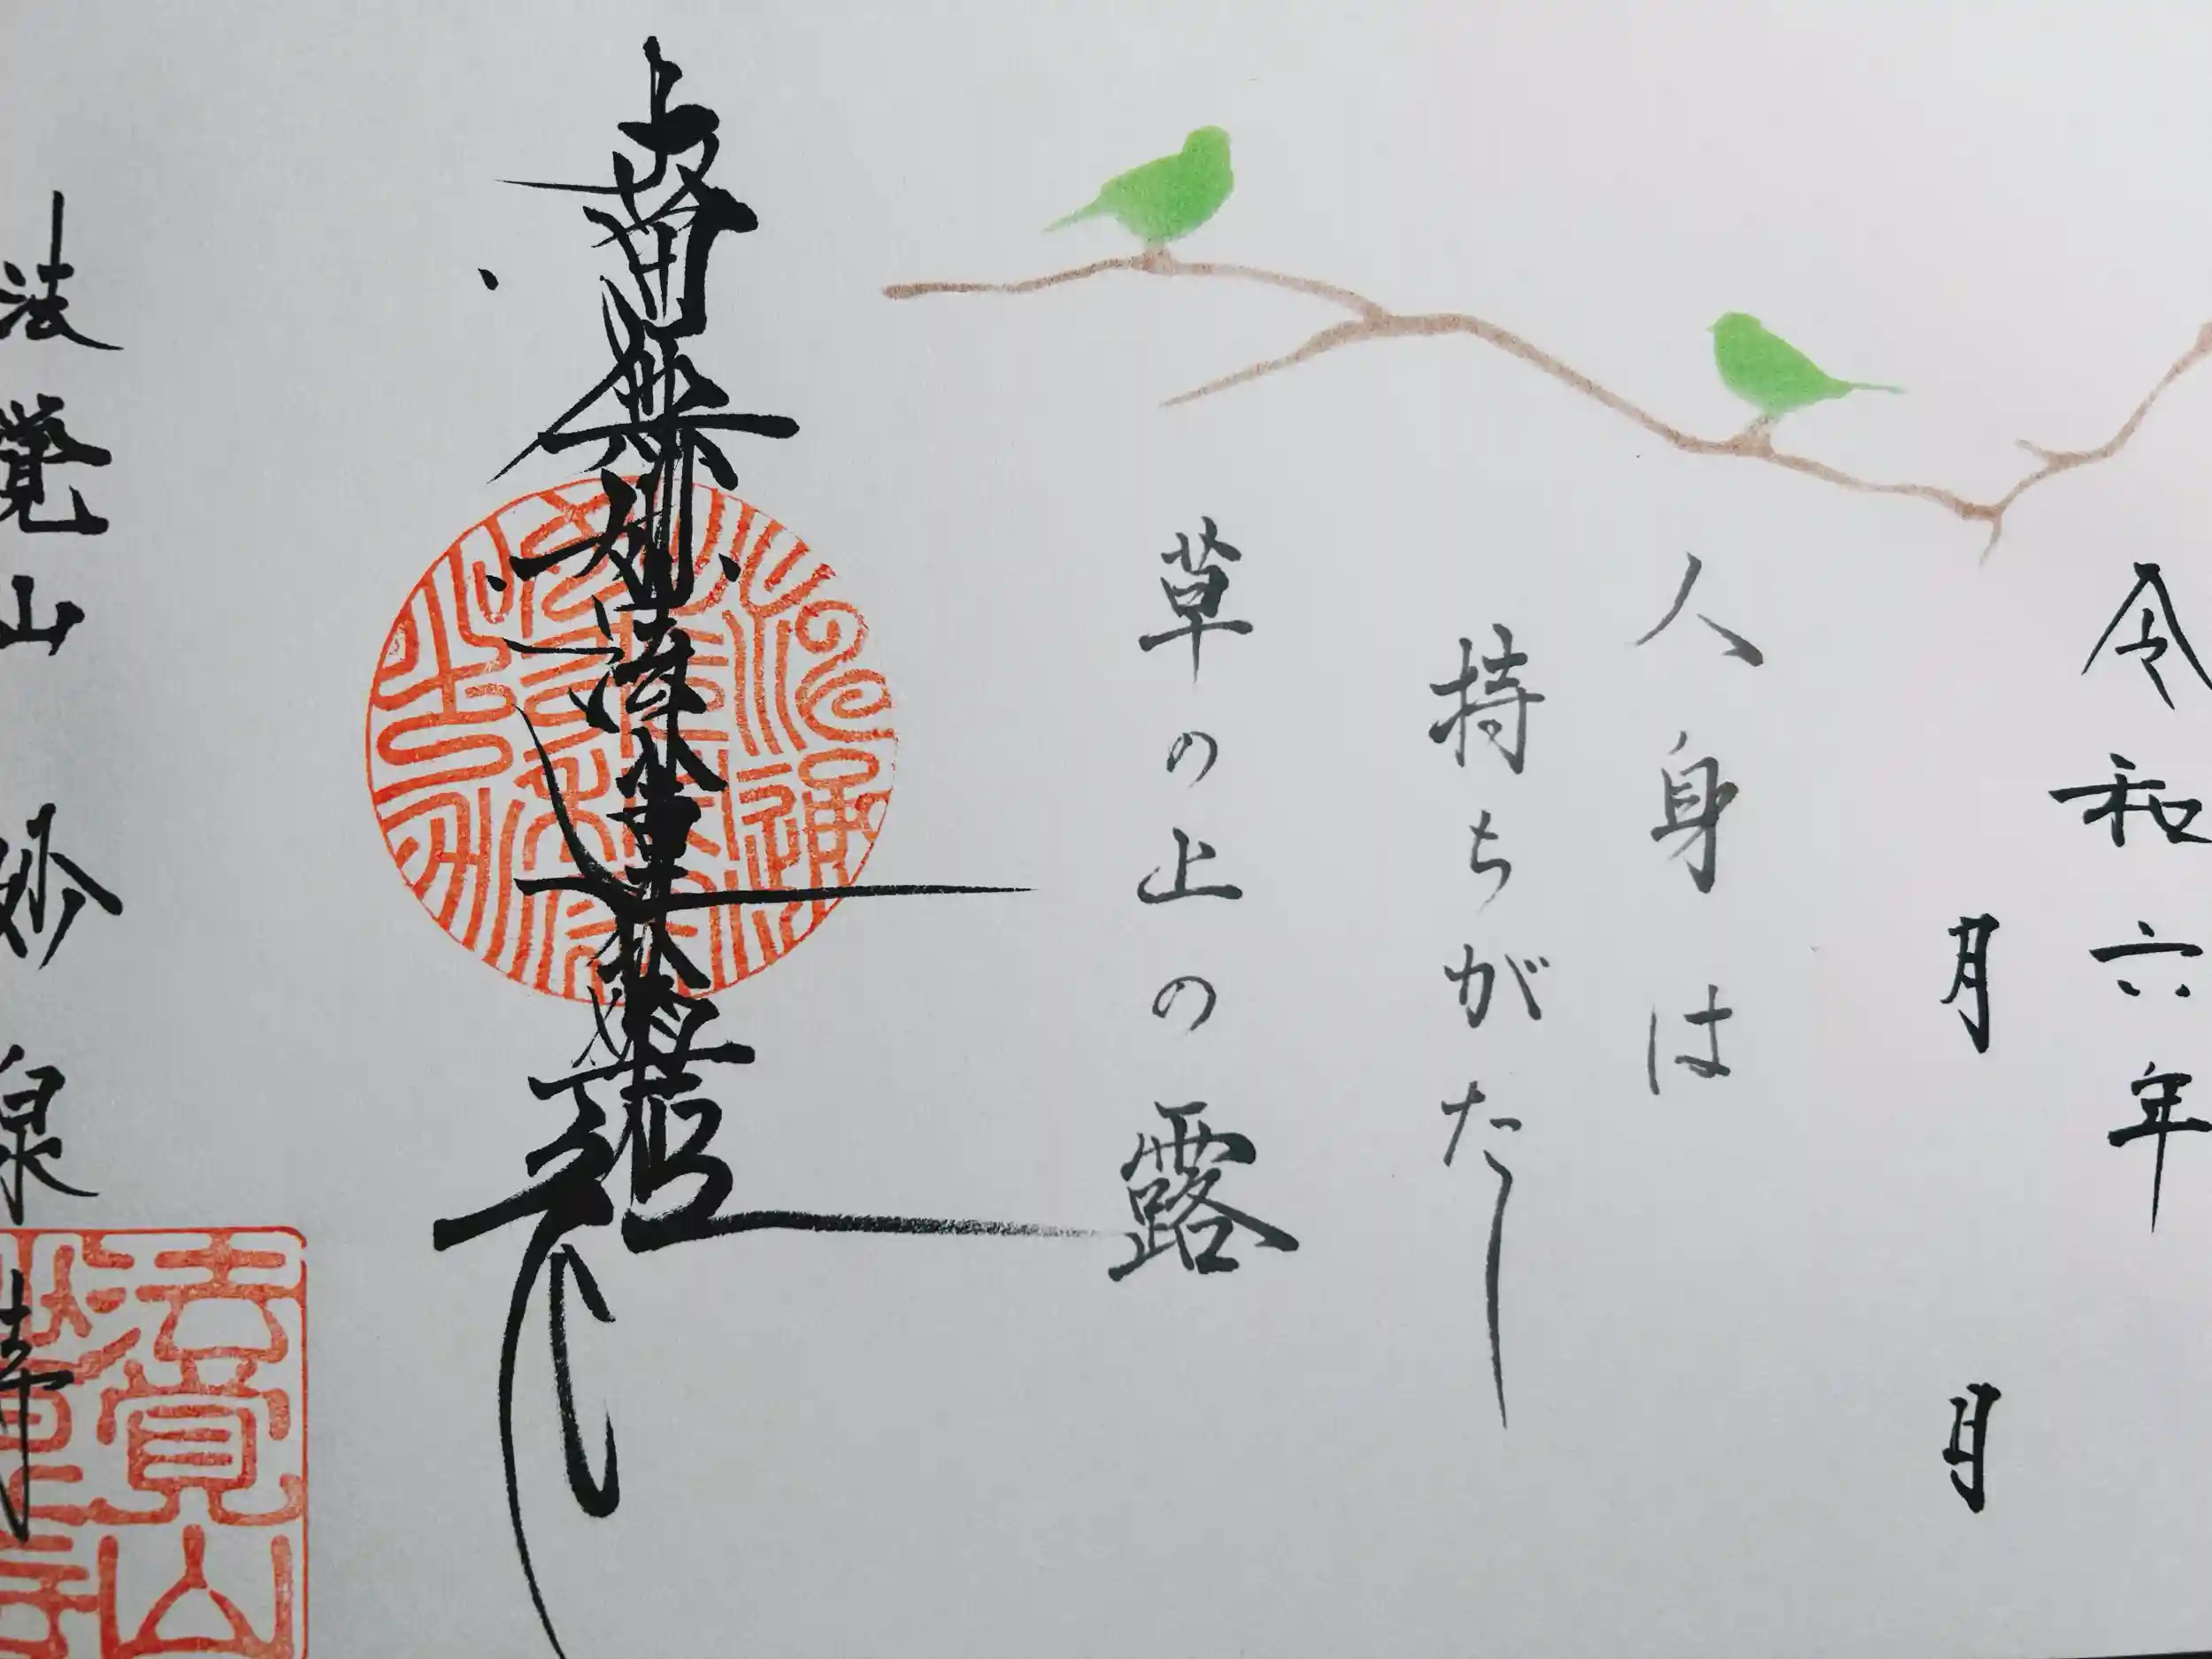 令和六年
月 日
人身は
持ちがたし
草の上の露
南無妙法蓮華経
法覚山 妙泉寺
法覚山